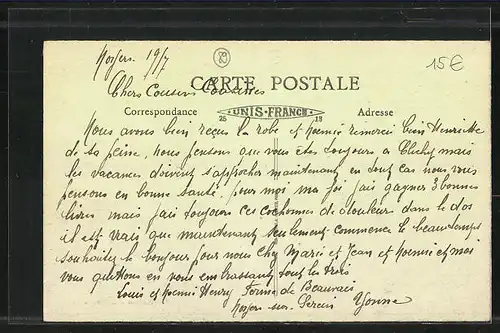 Noyers 19/7
89
15€
Chers Cousins Cousines
CARTE POSTALE
Correspondance
UNIS-FRANCE
Adresse
Nous avons bien reçus la robe et Noémie remerci bien Henriette
de sa peine, nous pensons que vous êtes toujours a Clichy mais
les vacances doivent s'approcher maintenant, en tout cas nous vous
pensons en bonne santé, pour moi ma foi j'ais gagner 3 bonnes
livres mais j'ais toujours ces cochonnes de douleurs dans le dos
il est vrais que maintenant seulement commence le beau temps
souhaitez le bonjour pour nous Chez Marie et Jean et Noémie et moi
vous quittons en vous embrassant tout les trois
Louis et Noémie Henry Ferme de Beauvais
Noyers sur Serein Yonne